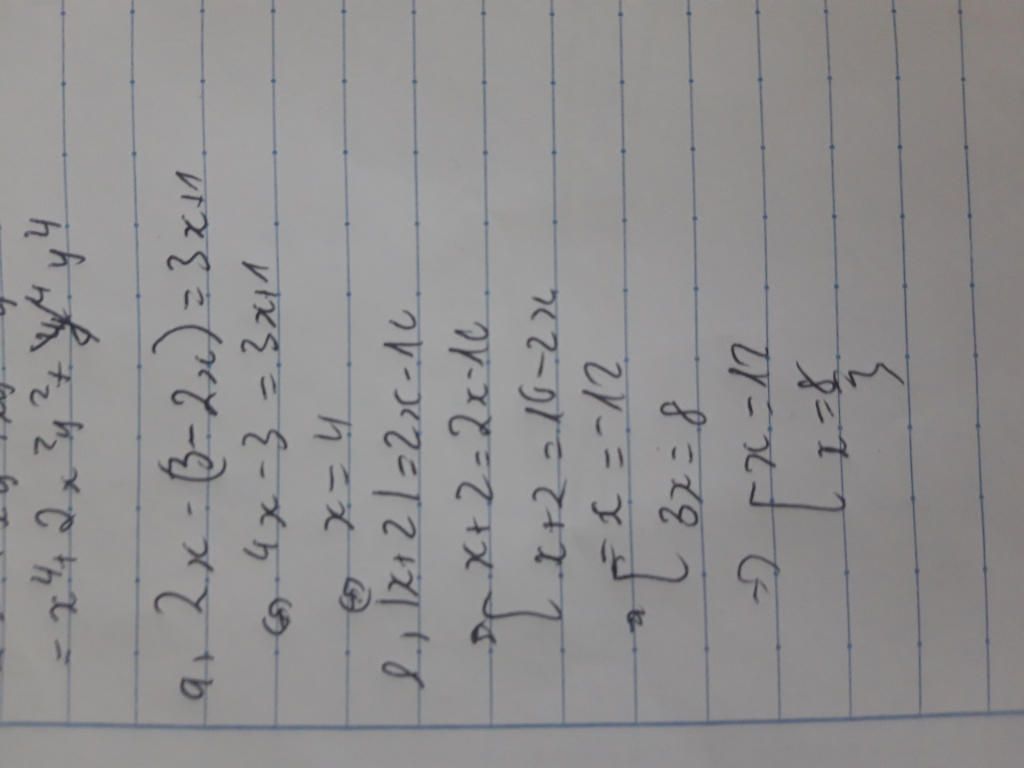 = x⁴ + 2x²y² + y⁴
a, 2x - (3 - 2x) = 3x + 1
⇔ 4x - 3 = 3x + 1
⇔ x = 4
b, |x + 2| = 2x - 10
⇒ [ x + 2 = 2x - 10
[ x + 2 = 10 - 2x
⇒ [ - x = -12
[ 3x = 8
=> [ x = 12
[ x = 8/3